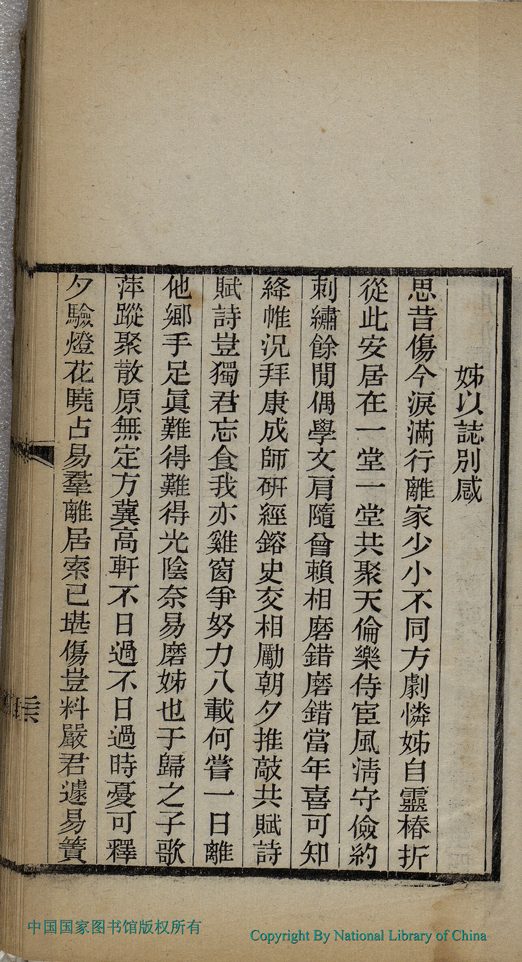 姊以誌別感
思昔傷今淚滿行離家少小不同方劇憐姊自靈椿折
從此安居在一堂一堂共聚天倫樂侍宦風淸守儉約
刺繡餘閒偶學文肩隨曾賴相磨錯磨錯當年喜可知
絳帷況拜康成師硏經鎔史交相勵朝夕推敲共賦詩
賦詩豈獨君忘食我亦雞窗爭努力八載何嘗一日離
他鄉手足眞難得難得光陰奈易磨姊也于歸之子歌
萍蹤聚散原無定方冀高軒不日過不日過時憂可釋
夕驗燈花曉占易羣離居索已堪傷豈料嚴君遽易簀
中国国家图书馆版权所有
Copyright By National Library of China